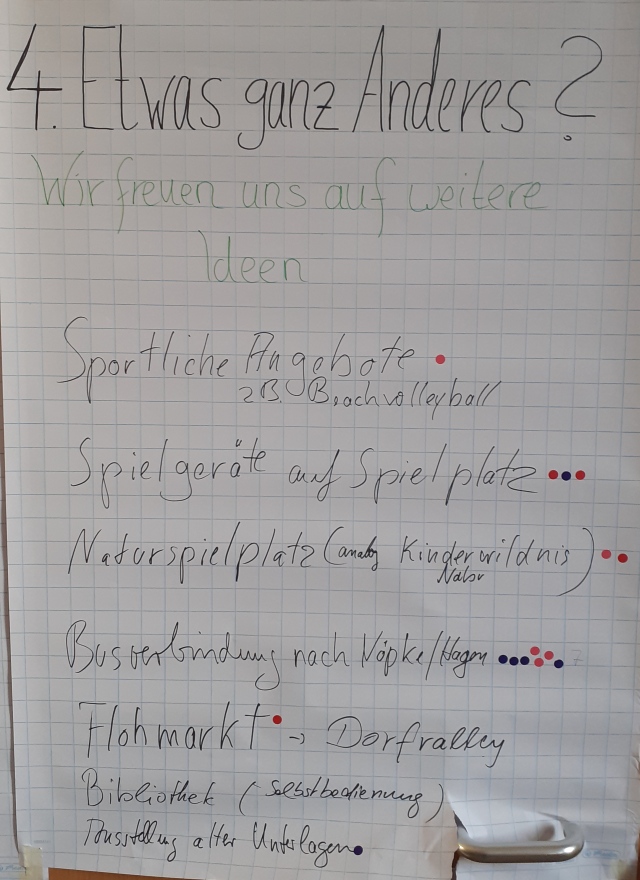 4. Etwas ganz Anderes?
Wir freuen uns auf weitere
Ideen
Sportliche Angebote
z.B. Beachvolleyball
Spielgeräte auf Spielplatz
Naturspielplatz (analog Kinderwildnis)
Nabu
Busverbindung nach Vöpke/Hagen
Flohmarkt → Dorfralley
Bibliothek (Selbstbedienung)
Ausstellung alter Unterlagen